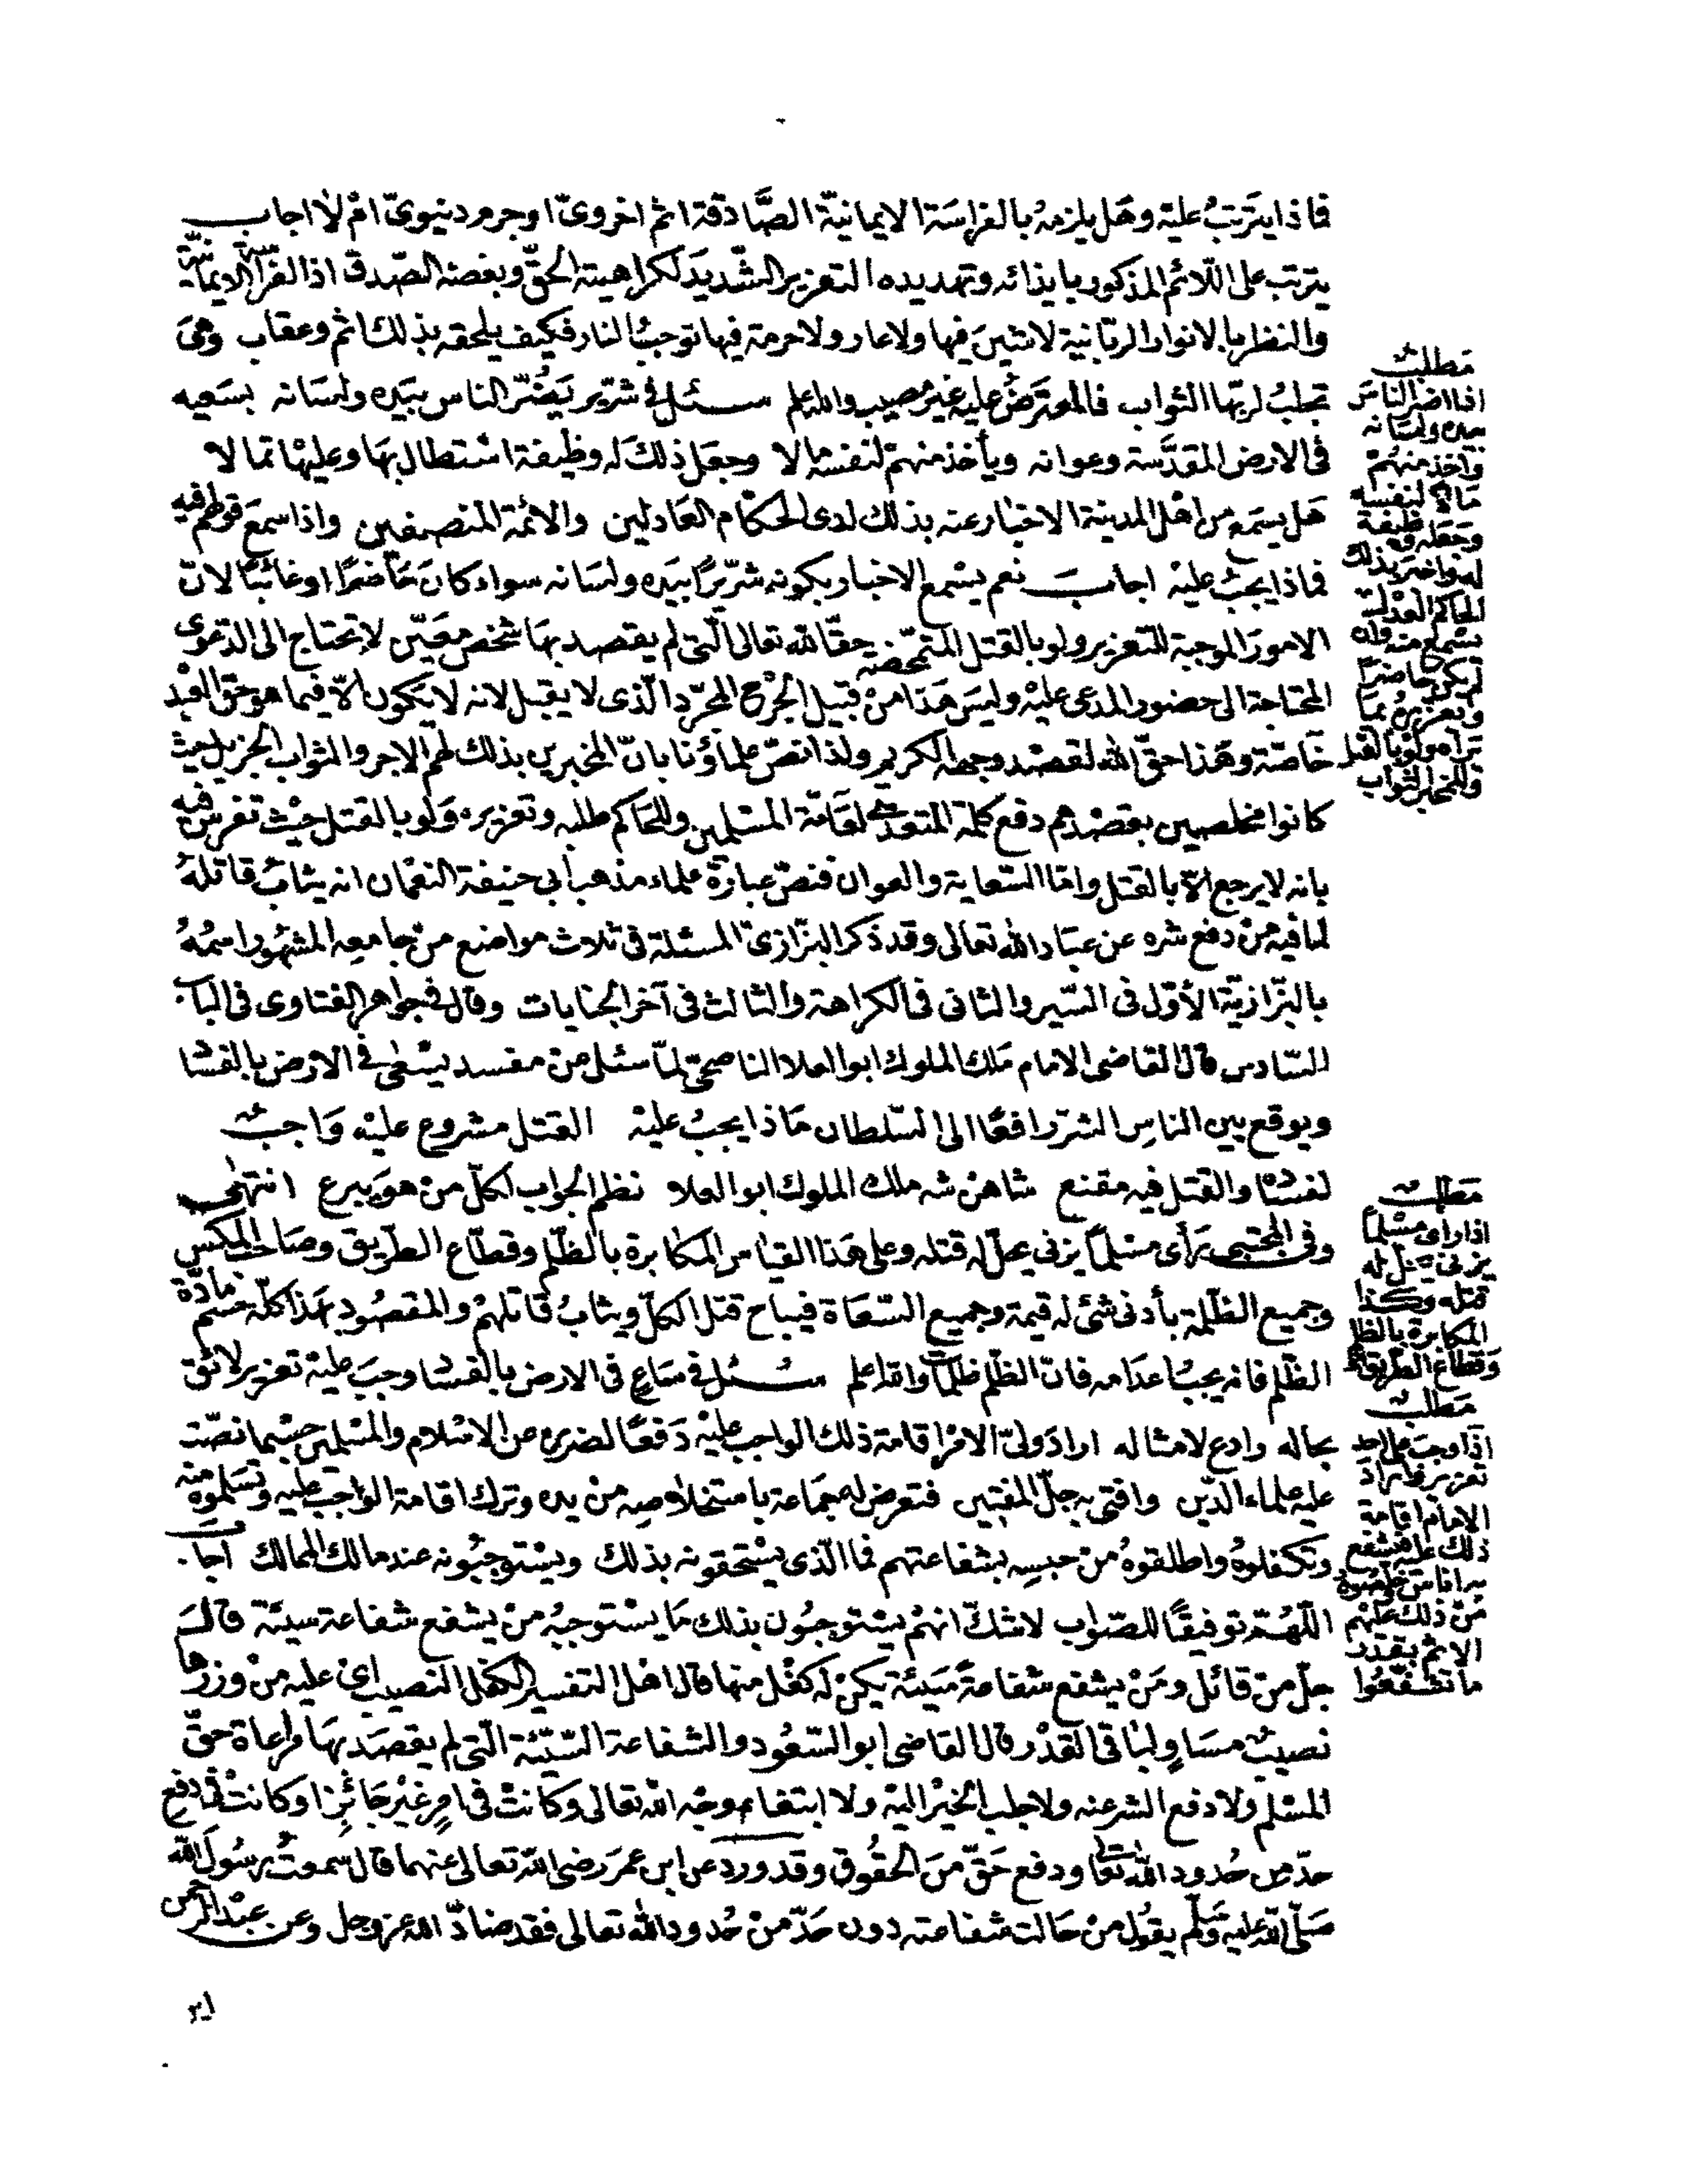 فماذا يترتب عليه وهل يلزمه بالفراسة الايمانية الصادقة اثم اخروي او جرم دنيوي ام لا اجاب
يترتب على اللائم المذكور بايذائه وتهديده التعزير الشديد لكراهيته الحق وبغضه الصدق اذ الفراسة الايمانية
والنظر بالانوار الربانية لا شين فيها ولا عار ولا حرمة فيها توجب النار فكيف يلحقه بذلك اثم وعقاب وهي
تجلب لربها الثواب فالمعترض عليه غير مصيب والله اعلم سئل في شرير يضر الناس بيده ولسانه بسعيه
في الارض المقدسة وعوانه ويأخذ منهم لنفسه مالا وجعل ذلك له وظيفة استطال بها وعليها تمالا
هل يسمع من اهل المدينة الاخبار عنه بذلك لدى الحكام العادلين والائمة المنصفين واذا سمع قولهم فيه
فماذا يجب عليه اجاب نعم يسمع الاخبار بكونه شريرا بيده ولسانه سواء كان حاضرا او غائبا لان
الامور الموجبة للتعزير ولو بالقتل المتمحضة حقا لله تعالى التي لم يقصد بها شخص معين لا تحتاج الى الدعوى
المحتاجة الى حضور المدعى عليه وليس هذا من قبيل الجرح المجرد الذي لا يقبل لانه لا يكون الا فيما هو حق العبد
خاصة وهذا حق الله لقصد وجهه الكريم ولذا نص علماؤنا بان المخبرين بذلك لهم الاجر والثواب الجزيل حيث
كانوا مخلصين بقصدهم دفع كلمة المتعدي لعامة المسلمين وللحاكم طلبه وتعزيره ولو بالقتل حيث تفرس فيه
بانه لا يرجع الا بالقتل واما السعاية والعوان فنص عبارة علماء مذهب ابي حنيفة النعمان انه يثاب قاتله
لما فيه من دفع شره عن عباد الله تعالى وقد ذكر البزازي المسئلة في ثلاث مواضع من جامعه المشهور اسمه
بالبزازية الاول في السير والثاني في الكراهة والثالث في آخر الجنايات وقال في جواهر الفتاوى في الباب
السادس قال القاضي الامام ملك الملوك ابو العلا الناصحي لما سئل من مفسد يسعى في الارض بالفسا
ويوقع بين الناس الشر رافعا الى السلطان ماذا يجب عليه القتل مشروع عليه واجب
لفساد والقتل فيه مقنع شاهن شه ملك الملوك ابو العلا نظم الجواب لكل من هو يبرع انتهى
وفي المجتبى رأى مسلما يزني يحل له قتله وعلى هذا القياس المكابرة بالظلم وقطاع الطريق وصاحب المكس
وجميع الظلمة بأدنى شئ له قيمة وجميع السعاة فيباح قتل الكل ويثاب قاتلهم والمقصود بهذا كله حسم مادة
الظلم فانه يجب اعدامه فان الظلم ظلمات والله اعلم سئل في ساع في الارض بالفساد وجب عليه تعزير لائق
بحاله رادع لامثاله اراد ولي الامر اقامة ذلك الواجب عليه دفعا لضرره عن الاسلام والمسلمين حسبما نصت
عليه علماء الدين وافتى به جل المفتين فتعرض له جماعة باستخلاصه من يده وترك اقامة الواجب عليه وتسلموه منه
وتكفلوه واطلقوه من حبسه بشفاعتهم فما الذي يستحقونه بذلك ويستوجبونه عند مالك الممالك اجاب
اللهم توفيقا للصواب لا شك انهم يستوجبون بذلك ما يستوجبه من يشفع شفاعة سيئة قال
جل من قائل ومن يشفع شفاعة سيئة يكن له كفل منها قال اهل التفسير الكفل النصيب اي عليه من وزرها
نصيب مساو لها في القدر قال القاضي ابو السعود والشفاعة السيئة التي لم يقصد بها مراعاة حق
المسلم ولا دفع الشر عنه ولا جلب الخير اليه ولا ابتغاء وجه الله تعالى وكانت في امر غير جائز او كانت في دفع
حد من حدود الله تعالى ودفع حق من الحقوق وقد ورد عن ابن عمر رضي الله تعالى عنهما قال سمعت رسول الله
صلى الله عليه وسلم يقول من حالت شفاعته دون حد من حدود الله تعالى فقد ضاد الله عز وجل وعن عبد الرحمن
مطلب
اذا اضر الناس
بيده ولسانه
وأخذ منهم
مالا لنفسه
وجعله وظيفة
له واخبر بذلك
الحاكم العدل
يسمع منه وان
لم يكن حاضرا
وتعزيره بما
يراه ولو بالقتل
وللمخبر الثواب
مطلب
اذا رأى مسلما
يزني يحل له
قتله وكذا
المكابرة بالظلم
وقطاع الطريق
مطلب
اذا وجب على احد
تعزير فاراد
الامام اقامة
ذلك عليه فتشفع
به اناس
من ذلك عليهم
الاثم بقدر
ما تشفعوا